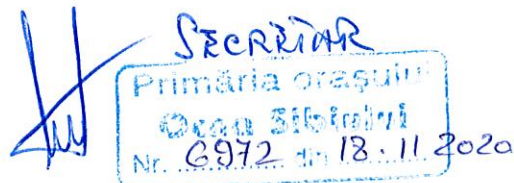 SECRETAR
Primăria orașului
Ocna Sibiului
Nr. 6972 din 18.11.2020